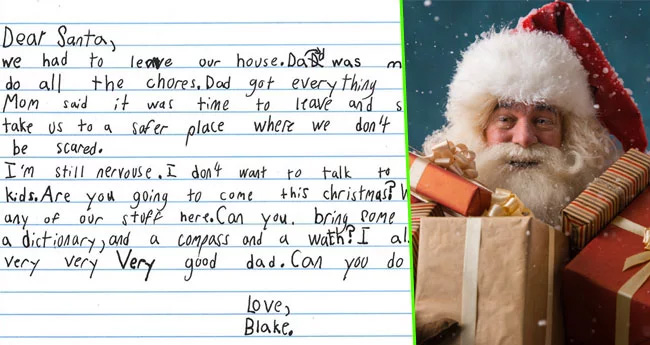 Dear Santa,
we had to leave our house. Dad was m
do all the chores. Dad got everything
Mom said it was time to leave and s
take us to a safer place where we don't
be scared.
I'm still nervouse. I don't want to talk to
kids. Are you going to come this christmas?
any of our stuff here. Can you bring some
a dictionary, and a compass and a wath? I al
very very very good dad. Can you do
Love,
Blake.